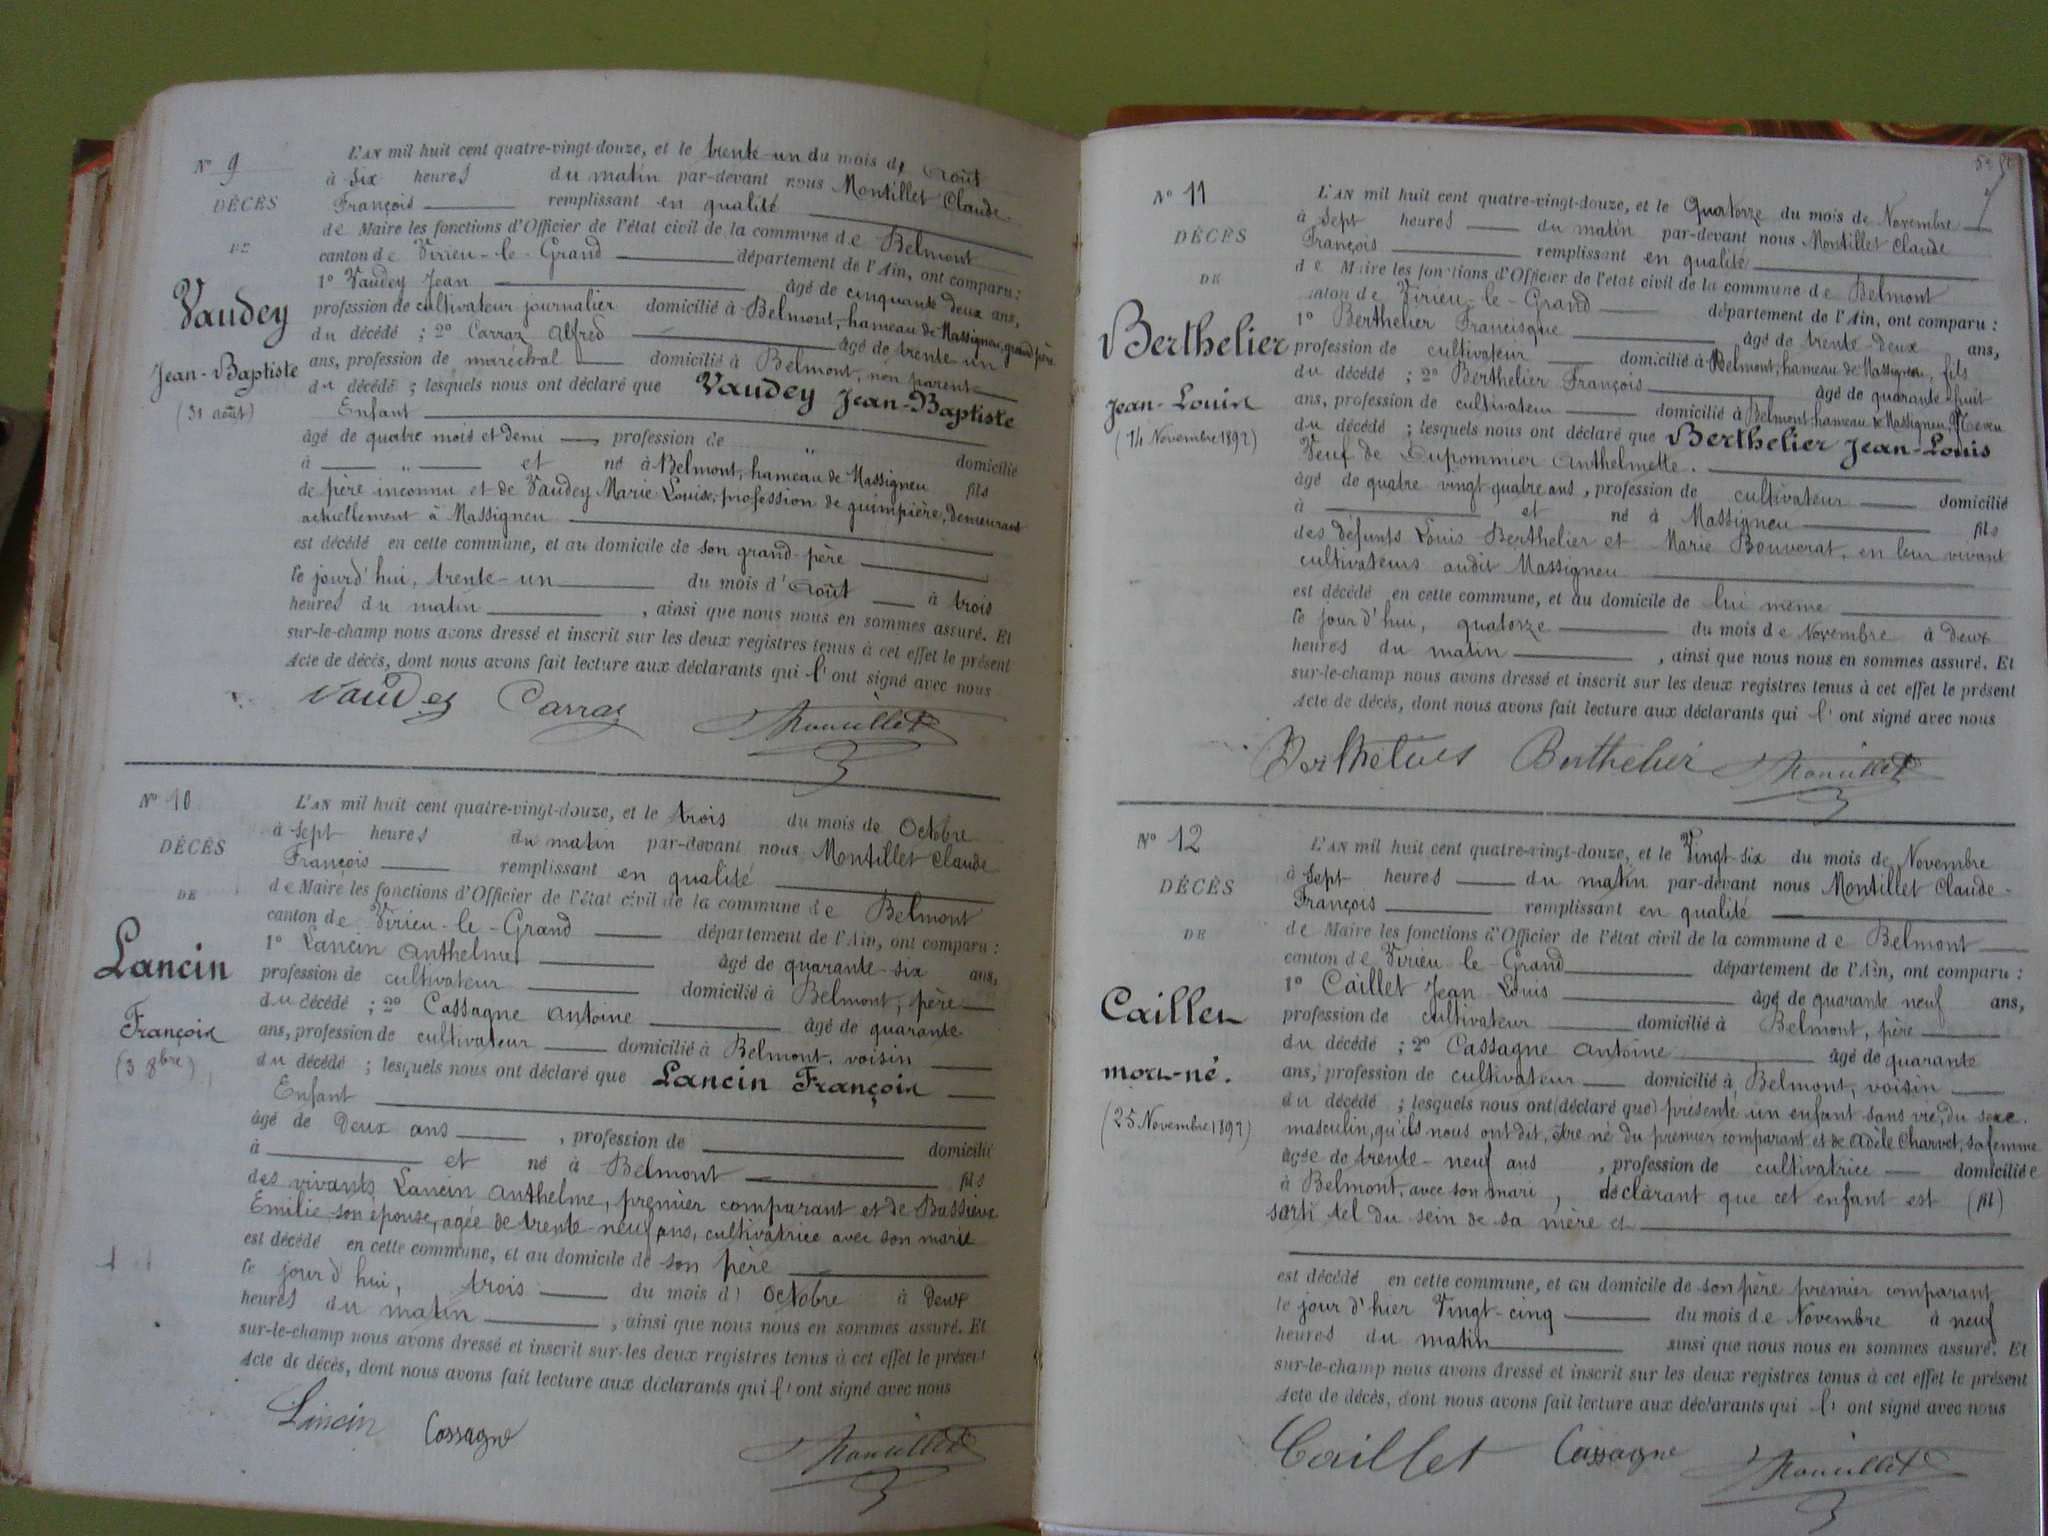 N° 9
DÉCÈS
DE
Vaudey
Jean-Baptiste
(31 août)
L'AN mil huit cent quatre-vingt-douze, et le trente-un du mois d'Août
à Six heures du matin par-devant nous Montillet Claude-
François remplissant en qualité
de Maire les fonctions d'Officier de l'état civil de la commune de Belmont
canton de Virieu-le-Grand département de l'Ain, ont comparu :
1° Vaudey Jean âgé de cinquante deux ans,
profession de cultivateur journalier domicilié à Belmont, hameau de Massigneu, grand père
du décédé ; 2° Carraz Alfred âgé de trente un
ans, profession de maréchal domicilié à Belmont, non parent
du décédé ; lesquels nous ont déclaré que Vaudey Jean-Baptiste
Enfant
âgé de quatre mois et demi , profession de " domicilié
à " et né à Belmont, hameau de Massigneu fils
de père inconnu et de Vaudey Marie Louise, profession de guimpière, demeurant
actuellement à Massigneu
est décédé en cette commune, et au domicile de son grand-père
le jourd'hui, trente-un du mois d'Août à trois
heures du matin , ainsi que nous nous en sommes assuré. Et
sur-le-champ nous avons dressé et inscrit sur les deux registres tenus à cet effet le présent
Acte de décès, dont nous avons fait lecture aux déclarants qui l'ont signé avec nous
Vaudey Carraz Montillet
N° 10
DÉCÈS
DE
Lancin
François
(3 8bre)
L'AN mil huit cent quatre-vingt-douze, et le trois du mois de Octobre
à Sept heures du matin par-devant nous Montillet Claude
François remplissant en qualité
de Maire les fonctions d'Officier de l'état civil de la commune de Belmont
canton de Virieu-le-Grand département de l'Ain, ont comparu :
1° Lancin Anthelme âgé de quarante-six ans,
profession de cultivateur domicilié à Belmont, père
du décédé ; 2° Cassagne Antoine âgé de quarante
ans, profession de cultivateur domicilié à Belmont, voisin
du décédé ; lesquels nous ont déclaré que Lancin François
Enfant
âgé de Deux ans , profession de domicilié
à et né à Belmont fils
des vivants Lancin Anthelme, premier comparant et de Bassieux
Emilie son épouse, agée de trente-neuf ans, cultivatrice avec son mari
est décédé en cette commune, et au domicile de son père
le jour d'hui, trois du mois d' Octobre à Deux
heures du matin , ainsi que nous nous en sommes assuré. Et
sur-le-champ nous avons dressé et inscrit sur les deux registres tenus à cet effet le présent
Acte de décès, dont nous avons fait lecture aux déclarants qui l'ont signé avec nous
Lancin Cassagne Montillet
N° 11
DÉCÈS
DE
Berthelier
Jean-Louis
(14 Novembre 1892)
L'AN mil huit cent quatre-vingt-douze, et le Quatorze du mois de Novembre
à Sept heures du matin par-devant nous Montillet Claude
François remplissant en qualité
de Maire les fonctions d'Officier de l'état civil de la commune de Belmont
canton de Virieu-le-Grand département de l'Ain, ont comparu :
1° Berthelier Francisque âgé de trente-deux ans,
profession de cultivateur domicilié à Belmont, hameau de Massigneu, fils
du décédé ; 2° Berthelier François âgé de quarante-huit
ans, profession de cultivateur domicilié à Belmont hameau de Massigneu, Neveu
du décédé ; lesquels nous ont déclaré que Berthelier Jean-Louis
Veuf de Dupommier Anthelmette.
âgé de quatre vingt quatre ans, profession de cultivateur domicilié
à et né à Massigneu fils
des défunts Louis Berthelier et Marie Bouverat, en leur vivant
cultivateurs audit Massigneu
est décédé en cette commune, et au domicile de lui même
le jour d'hui, quatorze du mois de Novembre à Deux
heures du matin , ainsi que nous nous en sommes assuré. Et
sur-le-champ nous avons dressé et inscrit sur les deux registres tenus à cet effet le présent
Acte de décès, dont nous avons fait lecture aux déclarants qui l'ont signé avec nous
Berthelier Montillet
N° 12
DÉCÈS
DE
Caillet
mort-né.
(25 Novembre 1892)
L'AN mil huit cent quatre-vingt-douze, et le Vingt-six du mois de Novembre
à Sept heures du matin par-devant nous Montillet Claude-
François remplissant en qualité
de Maire les fonctions d'Officier de l'état civil de la commune de Belmont
canton de Virieu-le-Grand département de l'Ain, ont comparu :
1° Caillet Jean Louis âgé de quarante neuf ans,
profession de cultivateur domicilié à Belmont, père
du décédé ; 2° Cassagne Antoine âgé de quarante
ans, profession de cultivateur domicilié à Belmont, voisin
du décédé ; lesquels nous ont (déclaré que) présenté un enfant sans vie, du sexe
masculin, qu'ils nous ont dit, être né du premier comparant et de Adèle Charvet, sa femme
âgée de trente-neuf ans , profession de cultivatrice domiciliée
à Belmont, avec son mari, déclarant que cet enfant est (fil)
sorti tel du sein de sa mère et
est décédé en cette commune, et au domicile de son père premier comparant
le jour d'hier Vingt-cinq du mois de Novembre à neuf
heures du matin ainsi que nous nous en sommes assuré. Et
sur-le-champ nous avons dressé et inscrit sur les deux registres tenus à cet effet le présent
Acte de décès, dont nous avons fait lecture aux déclarants qui l'ont signé avec nous
Caillet Cassagne Montillet